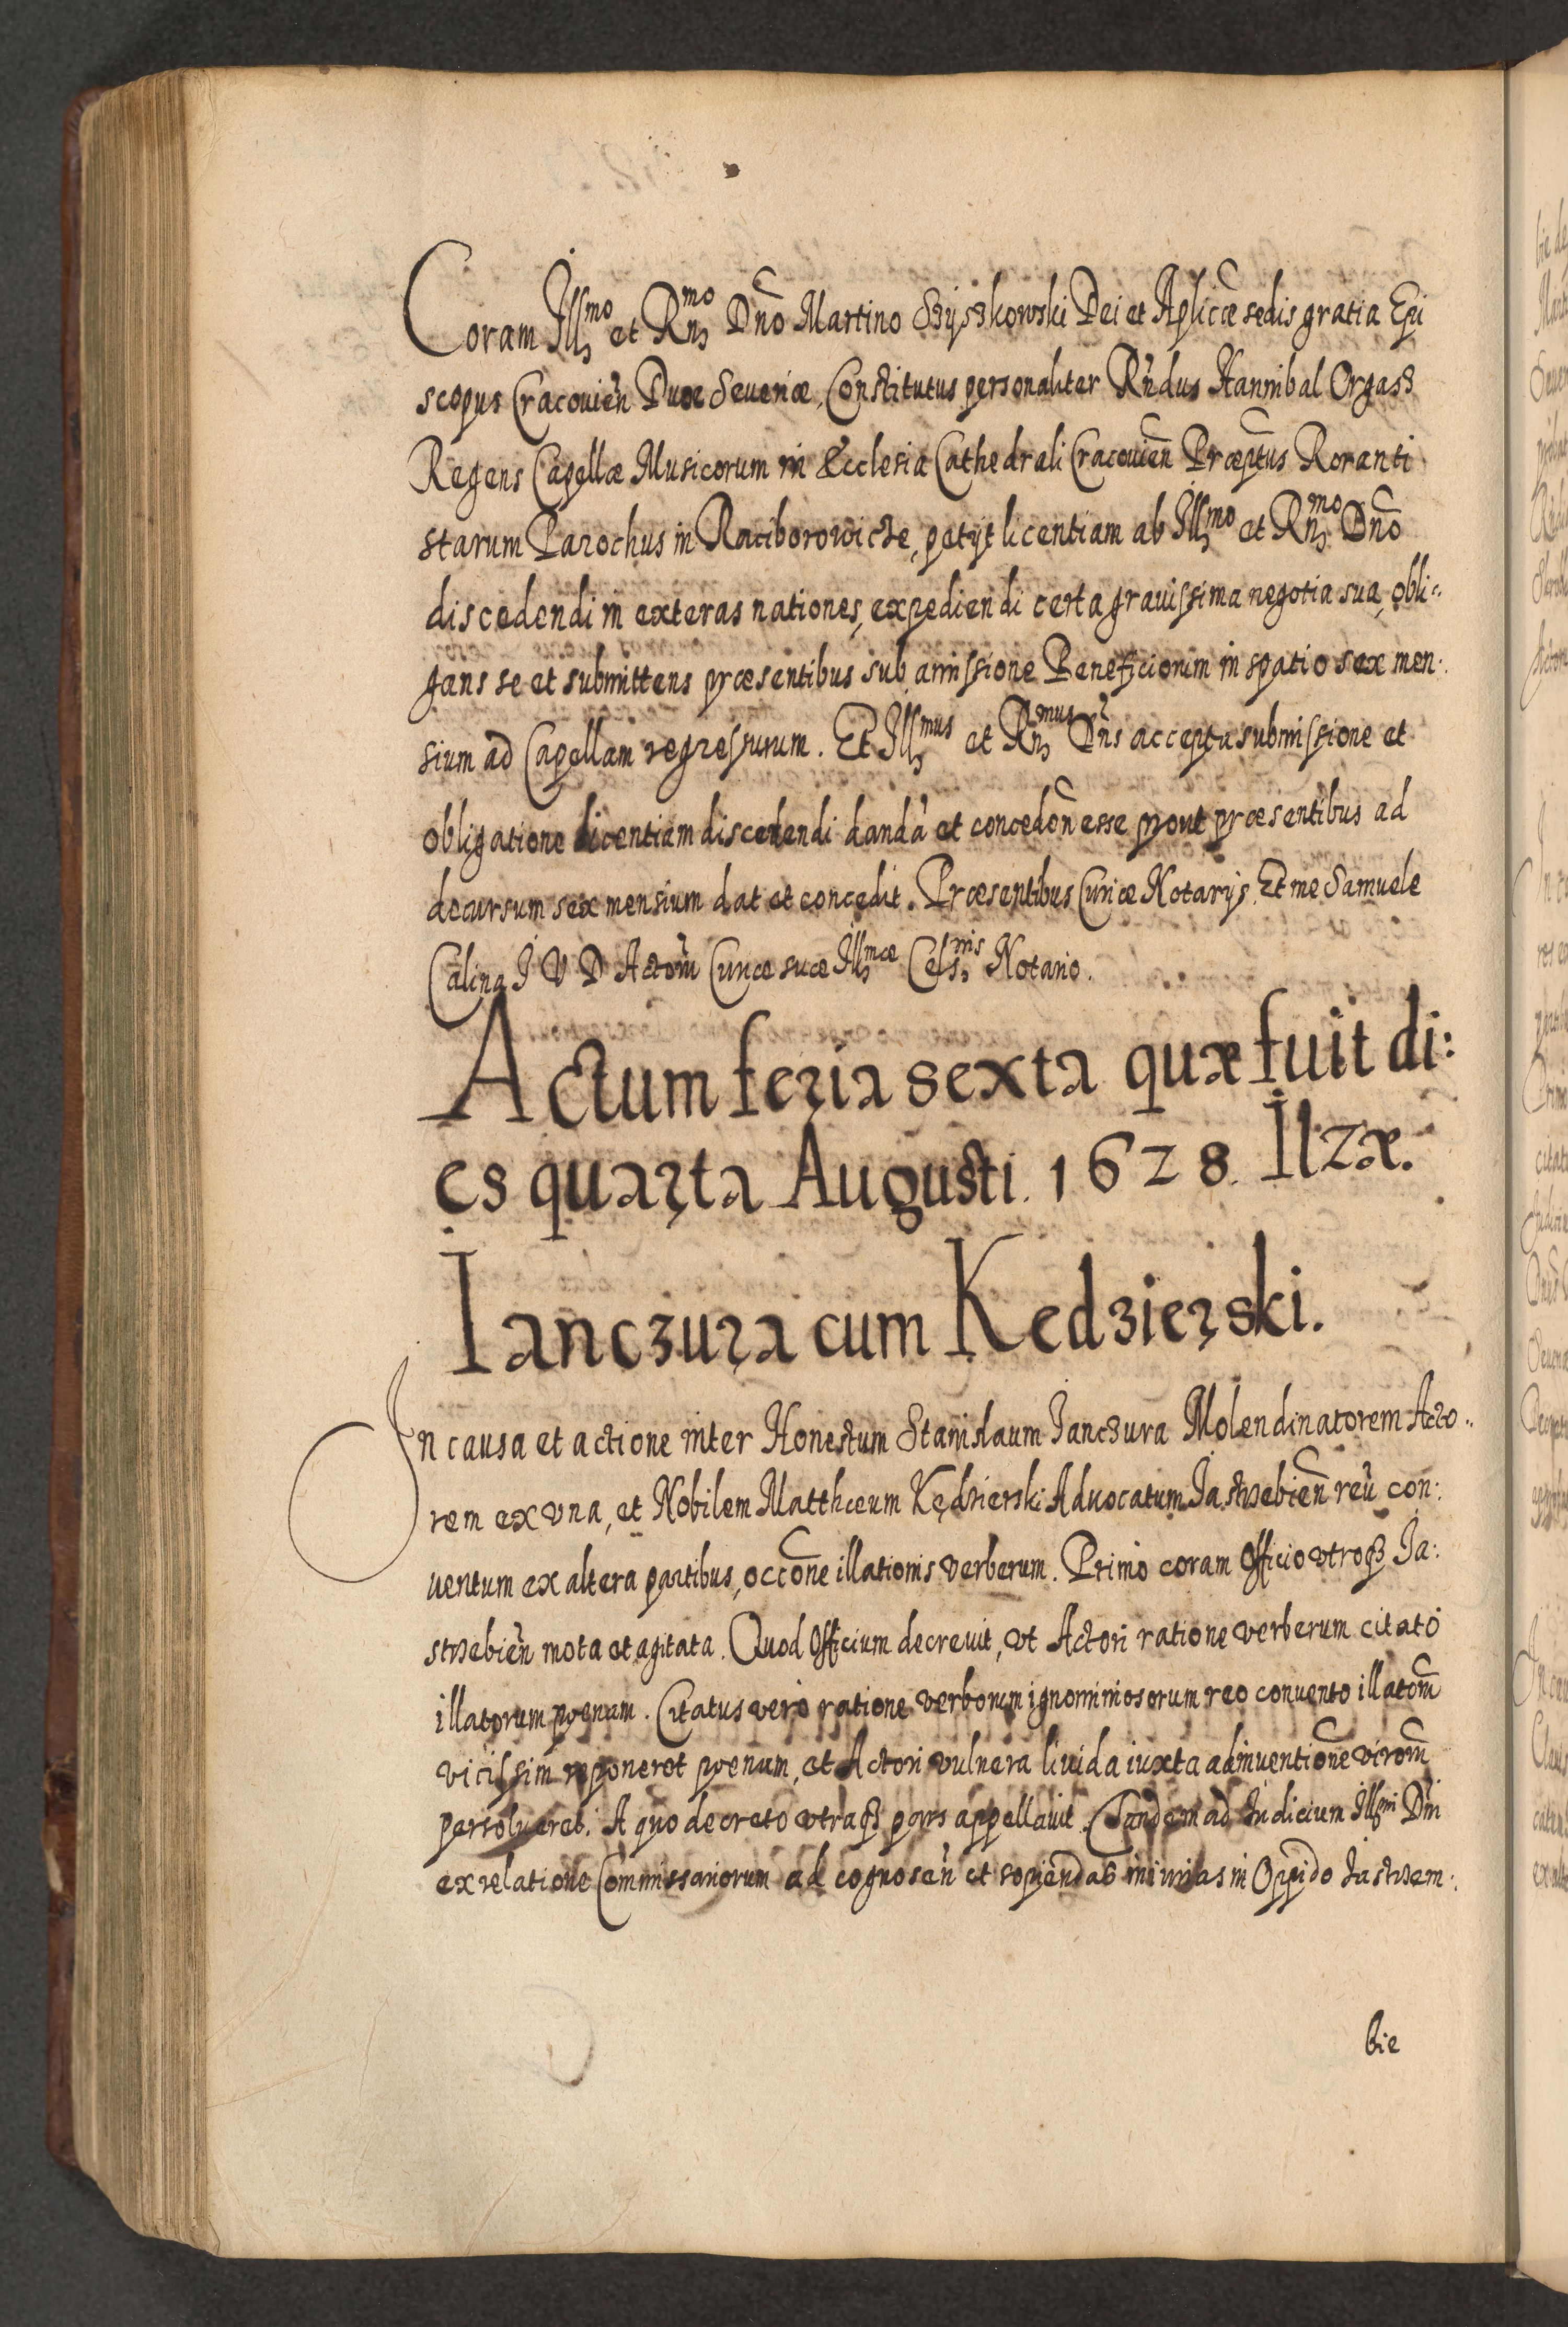 Coram Ill:mo et Rn:mo Dño Martino Szyszkowski Dei et Aplicæ sedis gratia Epi
scopus Cracouieñ Duce Seueriæ, Constitutus personaliter Rñdus Hannibal Orgasz
Regens Capellæ Musicorum in Ecclesia Cathedrali Cracouieñ Præptus Roranti
starum Parochus in Raciborowicze, petijt licentiam ab Ill:mo et Rn:mo Dño
discedendi in exteras nationes, expediendi certa grauissima negotia sua, obli:
gans se et submittens præsentibus sub amissione Beneficiorum in spatio sex men:
sium ad Capellam regressurum. Et Ill:mus et Rn:mus Dñs accepta submissione et
obligatione licentiam discedendi dandã et concedeñ esse prout præsentibus ad
decursum sex mensium dat et concedit. Præsentibus Curiæ Notarijs. Et me Samuele
Calina I V D Actorũ Curiæ suæ Ill:mæ Cels:nis Notario.
Actum feria sexta quæ fuit di:
es quarta Augusti. 1628. Ilzæ.
Ianczura cum Kedzierski.
In causa et actione inter Honestum Stanislaum Janczura Molendinatorem Acto:
rem ex vna, et Nobilem Matthæum Kędzierski Aduocatum Jastrzebieñ reũ con:
uentum ex altera partibus, occõne illationis verberum. Primo coram Officio vtroqz Ja:
strzebieñ mota et agitata. Quod Officium decreuit, vt Actori ratione verberum citato
illatorum pœnam. Citatus vero ratione verborum ignominiosorum reo conuento illatorũ
vicissim reponeret pœnam, et Actori vulnera liuida iuxta adinuentionẽ virorũ
persolueret. A quo decreto vtraqz pars appellauit. Tandem ad Iudicium Ill:mi Dñi
ex relatione Commissariorum ad cognoseñ et sopiendas iniurias in Oppido Jastrzem:
bie